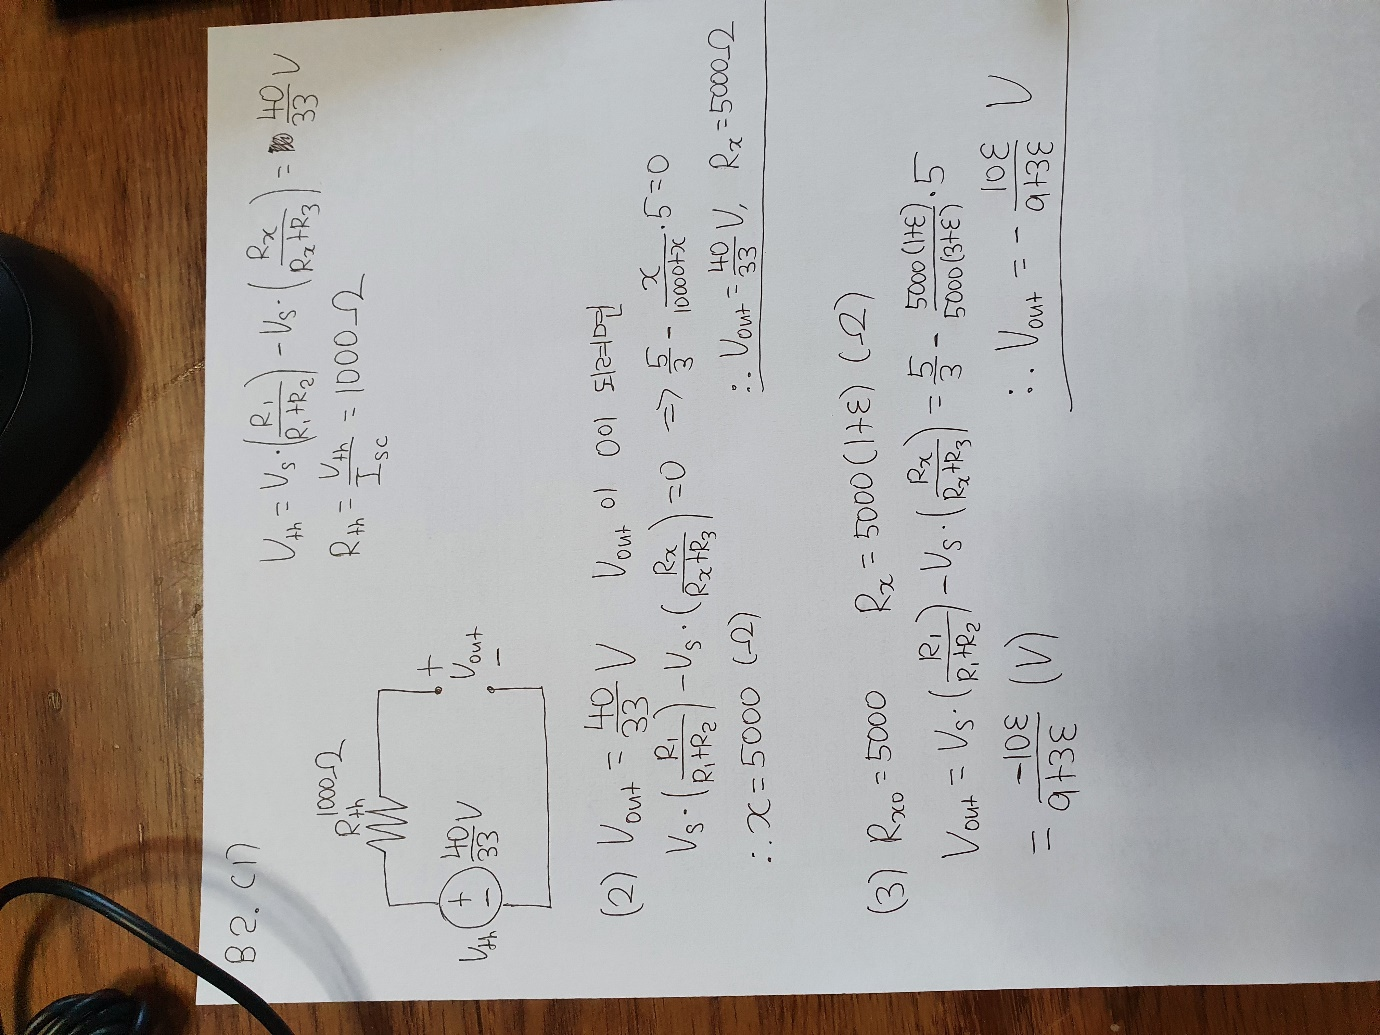 B2. (1)
1000Ω
Rth
Vth + - 40/33 V
+
Vout
-
Vth = Vs·(R1/(R1+R2)) - Vs·(Rx/(Rx+R3)) = 40/33 V
Rth = Vth/Isc = 1000Ω
(2) Vout = 40/33 V Vout 이 0이 되려면
Vs·(R1/(R1+R2)) - Vs·(Rx/(Rx+R3)) = 0 => 5/3 - x/(10000+x)·5 = 0
∴ x = 5000 (Ω)
∴ Vout = 40/33 V, Rx = 5000Ω
(3) Rx0 = 5000 Rx = 5000(1+ε) (Ω)
Vout = Vs·(R1/(R1+R2)) - Vs·(Rx/(Rx+R3)) = 5/3 - 5000(1+ε)/5000(3+ε)·5
= -10ε/(9+3ε) (V)
∴ Vout = - 10ε/(9+3ε) V